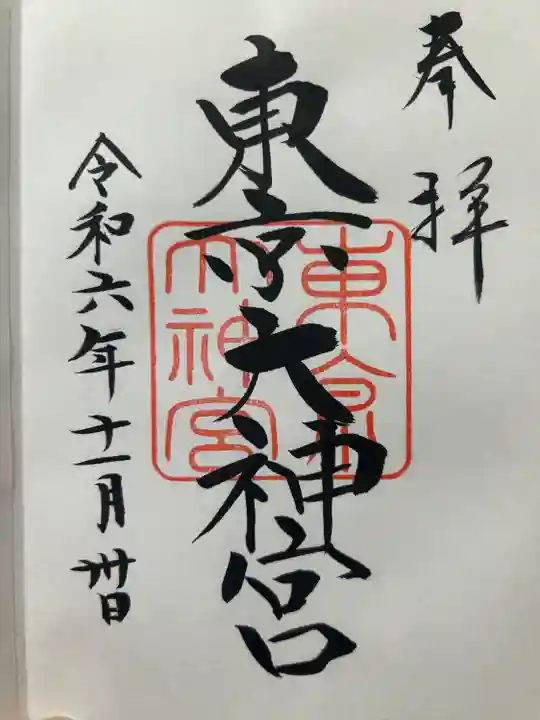 奉拝
東京大神宮
東京大神宮
令和六年十一月卅日